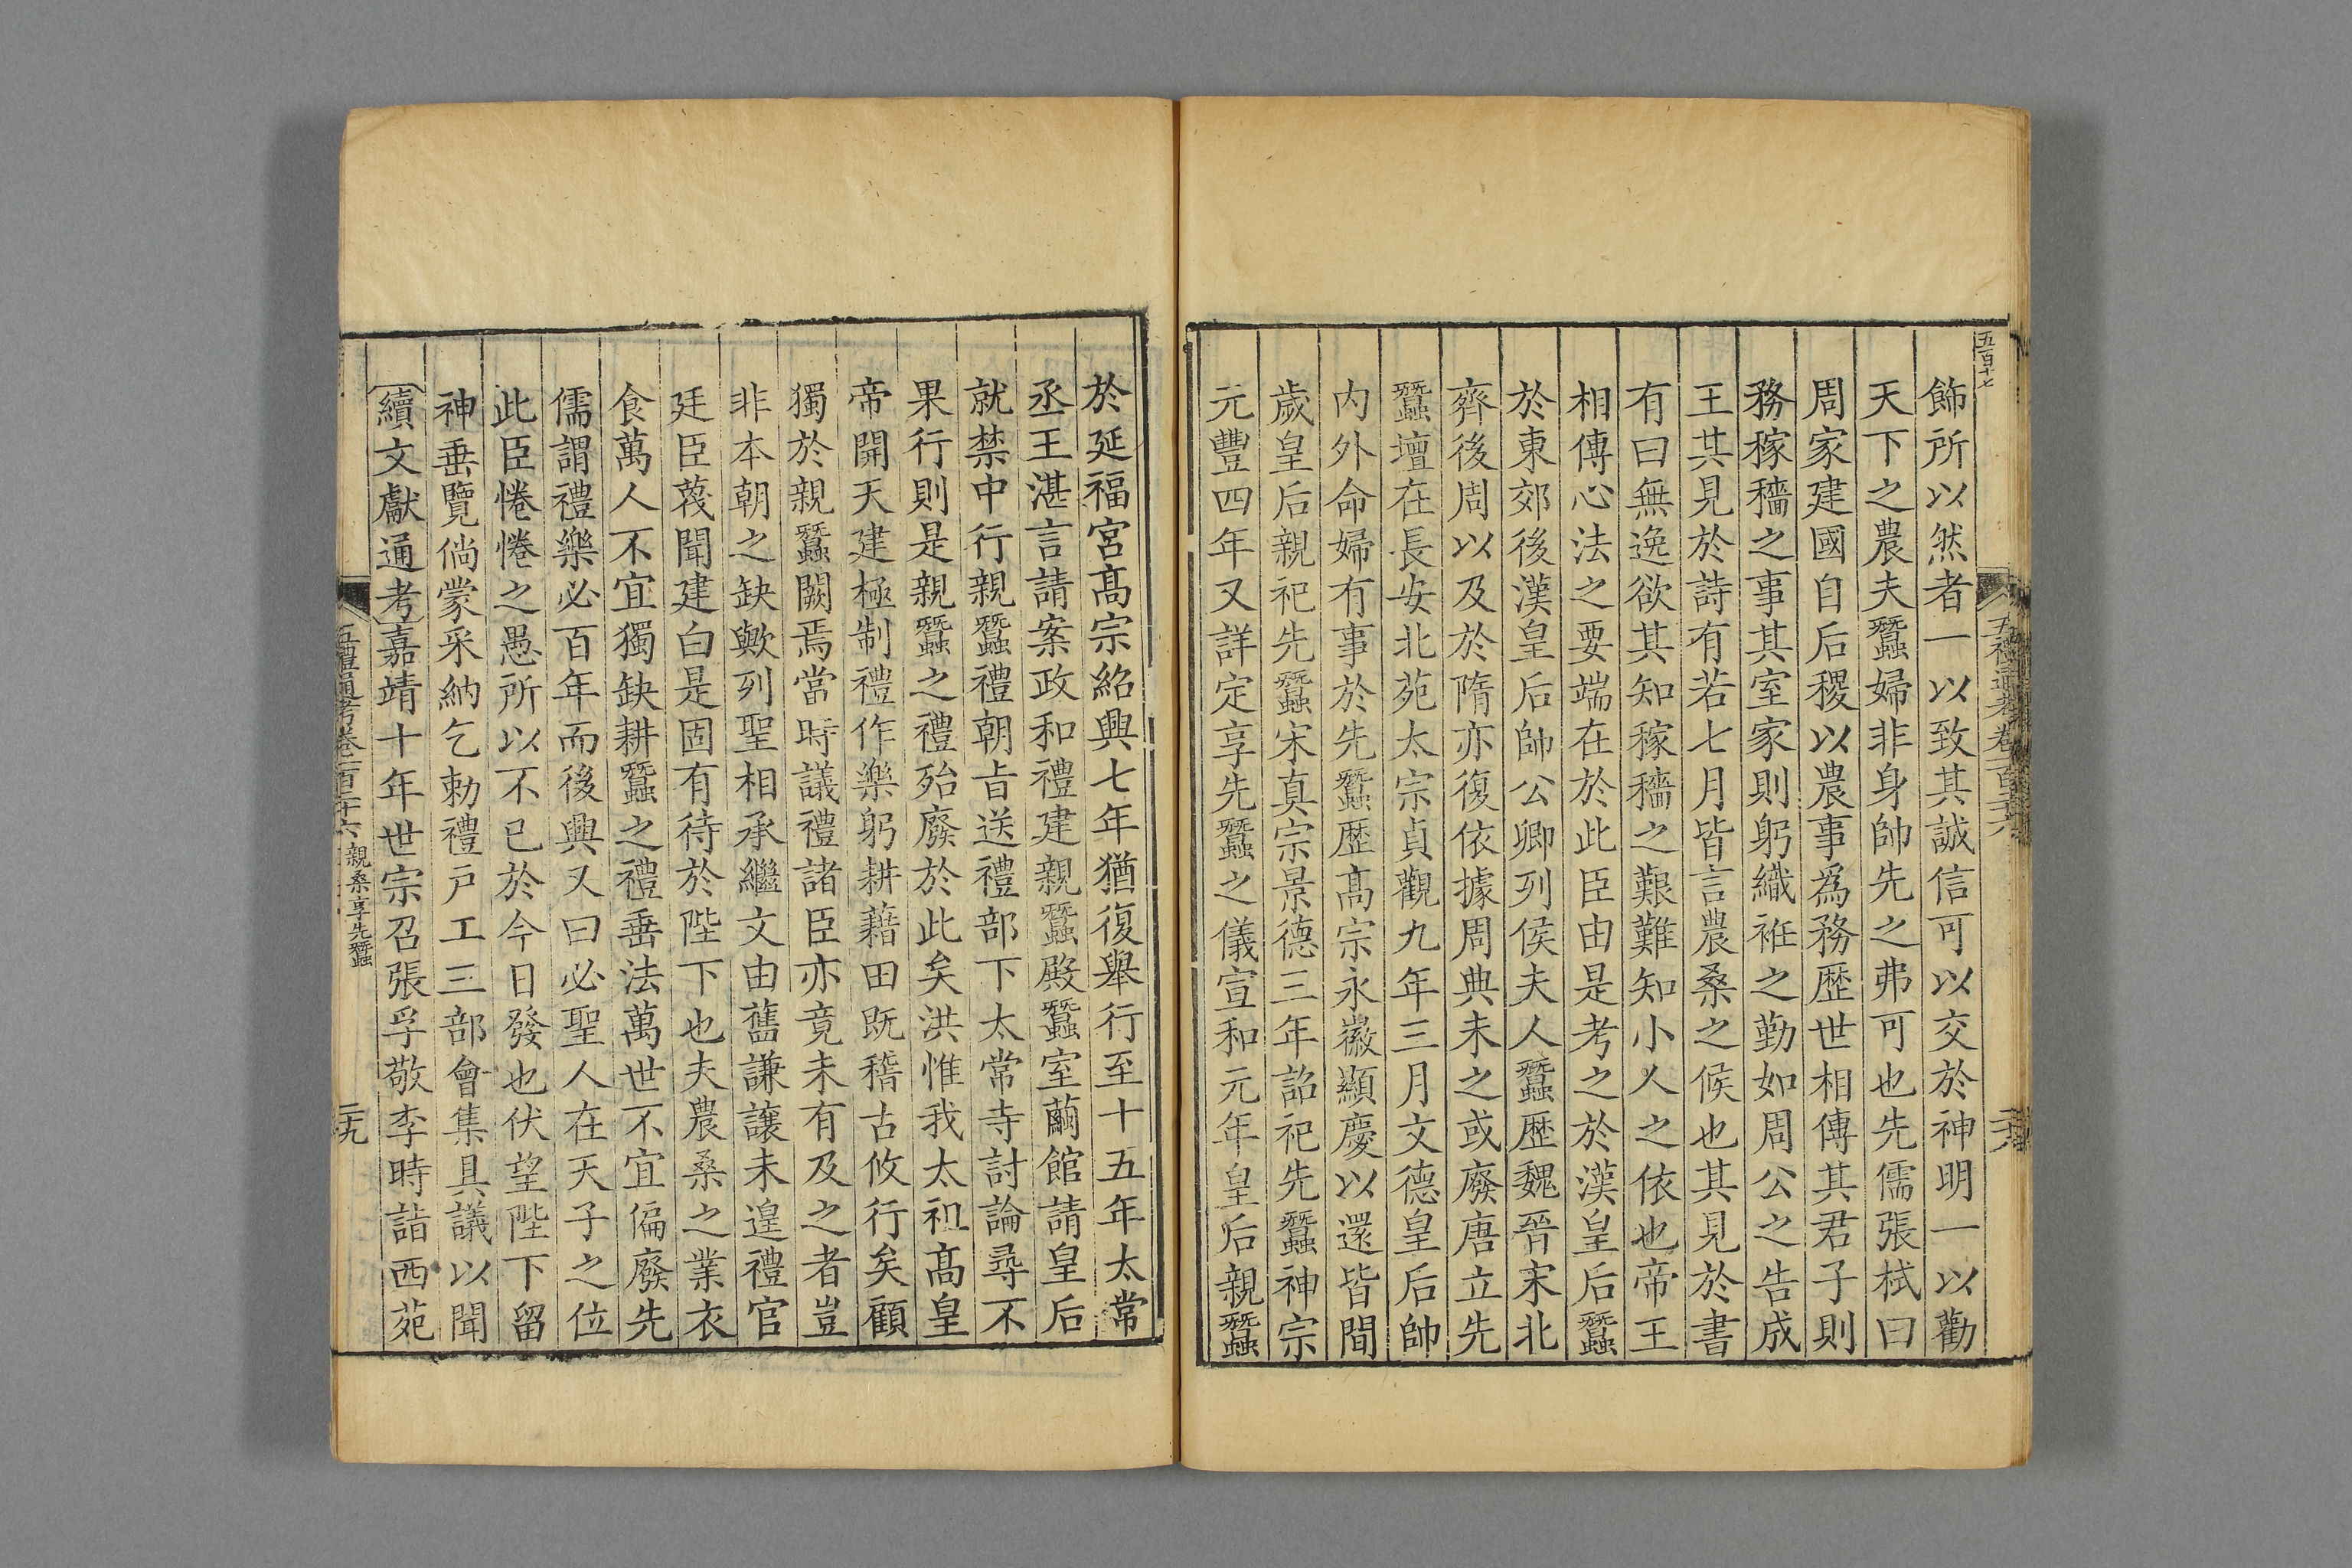 五百十七
飾所以然者一以致其誠信可以交於神明一以勸
天下之農夫蠶婦非身帥先之弗可也先儒張栻曰
周家建國自后稷以農事爲務歴世相傳其君子則
務稼穡之事其室家則躬織袵之勤如周公之告成
王其見於詩有若七月皆言農桑之候也其見於書
有曰無逸欲其知稼穡之艱難知小人之依也帝王
相傳心法之要端在於此臣由是考之於漢皇后蠶
於東郊後漢皇后帥公卿列侯夫人蠶歴魏晉宋北
齊後周以及於隋亦復依據周典未之或廢唐立先
蠶壇在長安北苑太宗貞觀九年三月文德皇后帥
内外命婦有事於先蠶歴高宗永徽顯慶以還皆間
歲皇后親祀先蠶宋真宗景德三年詔祀先蠶神宗
元豐四年又詳定享先蠶之儀宣和元年皇后親蠶
於延福宮髙宗紹興七年猶復舉行至十五年太常
丞王湛言請案政和禮建親蠶殿蠶室繭館請皇后
就禁中行親蠶禮朝㫖送禮部下太常寺討論尋不
果行則是親蠶之禮殆廢於此矣洪惟我太祖髙皇
帝開天建極制禮作樂躬耕藉田既稽古攸行矣顧
獨於親蠶闕焉當時議禮諸臣亦竟未有及之者豈
非本朝之缺歟列聖相承繼文由舊謙讓未遑禮官
廷臣蔑聞建白是固有待於陛下也夫農桑之業衣
食萬人不宜獨缺耕蠶之禮垂法萬世不宜偏廢先
儒謂禮樂必百年而後興又曰必聖人在天子之位
此臣惓惓之愚所以不已於今日發也伏望陛下留
神垂覽倘蒙采納乞勅禮戸工三部會集具議以聞
續文獻通考嘉靖十年世宗召張孚敬李時詣西苑
五禮通考卷一百二十六 親桑享先蠶 二十九